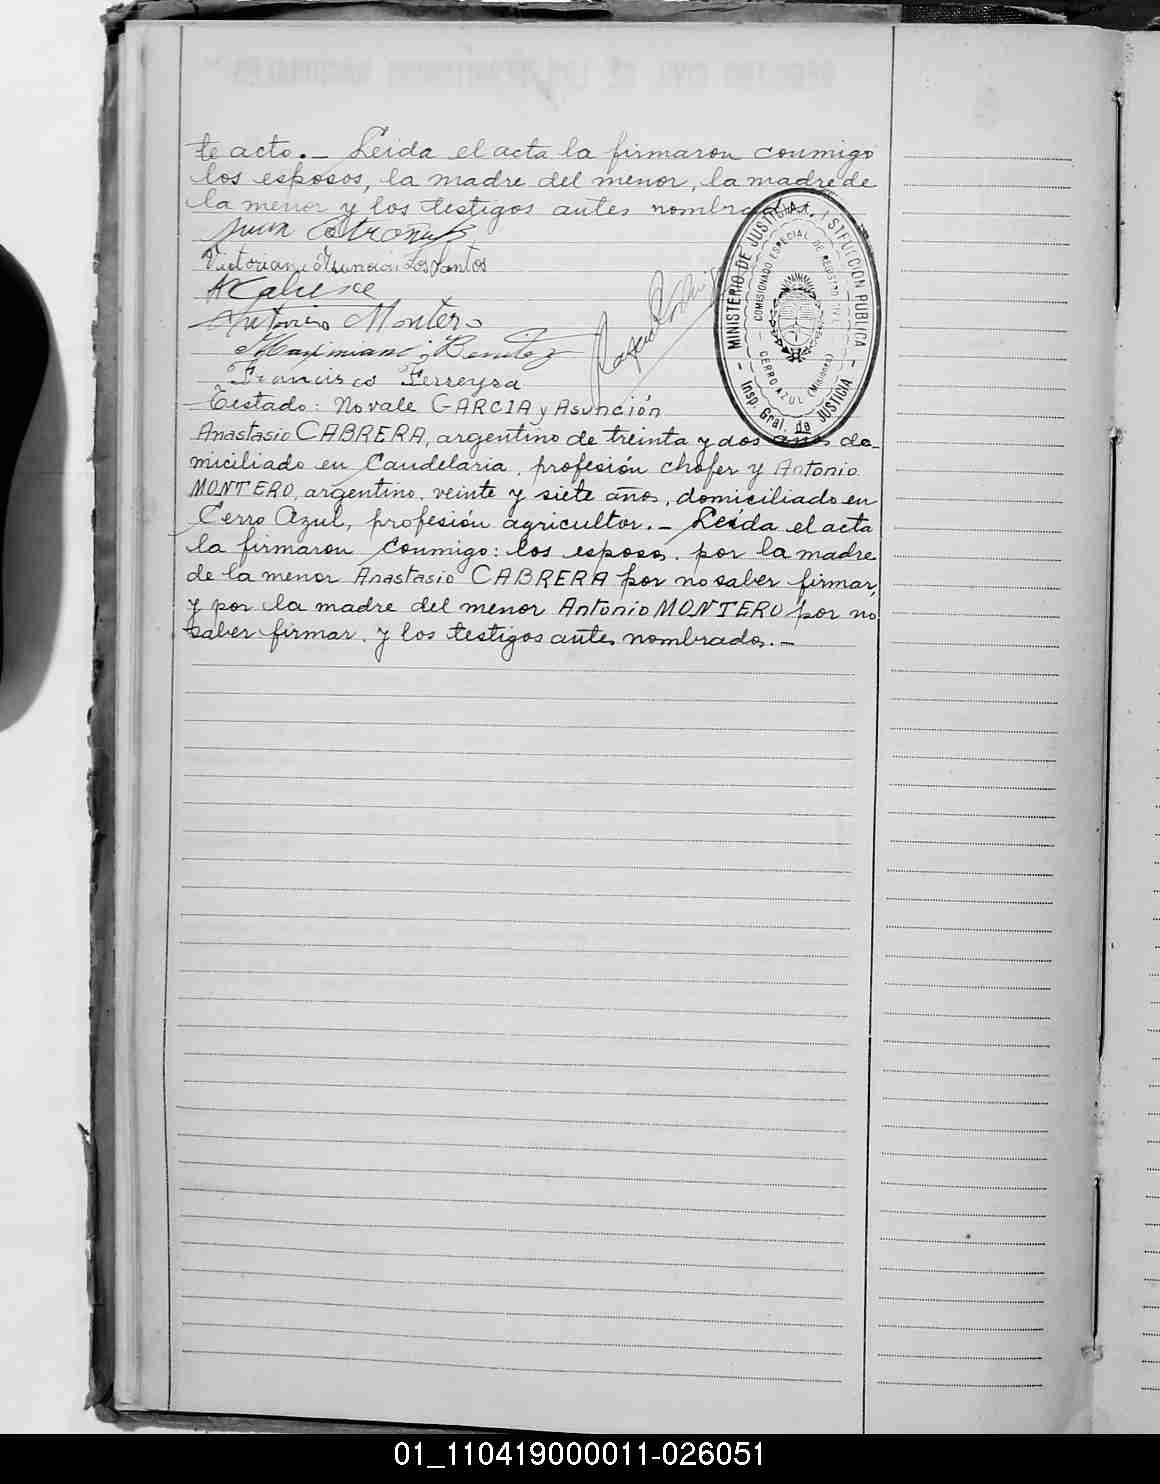 te acto. — Leída el acta la firmaron conmigo
los esposos, la madre del menor, la madre de
la menor y los testigos antes nombrados.
Juan
Victoriana Asunción Dos Santos
A Cabrera
Antonio Montero
Maximiano Benitez
Francisco Ferreyra
Testado: No vale GARCIA y Asunción
Anastasio CABRERA, argentino de treinta y dos años do-
miciliado en Candelaria, profesión chofer y Antonio
MONTERO, argentino, veinte y siete años, domiciliado en
Cerro Azul, profesión agricultor. — Leída el acta
la firmaron conmigo: los esposos, por la madre
de la menor Anastasio CABRERA por no saber firmar,
y por la madre del menor Antonio MONTERO por no
saber firmar, y los testigos antes nombrados. —
MINISTERIO DE JUSTICIA E INSTRUCCION PUBLICA
— Insp. Gral. de JUSTICIA —
COMISIONADO ESPECIAL DE REGISTRO CIVIL
CERRO AZUL (Misiones)
01_110419000011-026051